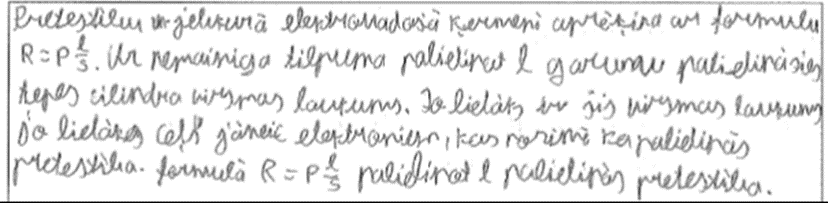 Pretestību jebkurā elektrovadošā ķermenī aprēķina ar formulu
R = ρ l/S. Un nemainīga tilpuma palielinot l garumu palielināsies
virsmas laukums. Jo lielāks ir šis virsmas laukums
jo lielāks ceļš jāveic elektroniem, kas nozīmē ka palielinās
pretestība. formulā R = ρ l/S palielinot l palielinās pretestība.